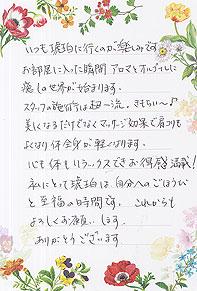 いつも琥珀に行くのが楽しみです。
お部屋に入った瞬間アロマとオルゴールに
癒しの世界が始まります。
スタッフの施術は超一流。きもちい〜♪
美しくなるだけでなくマッサージ効果で肩コリも
よくなり体全身が軽くなります。
心も体もリラックスできお得感満載!
私にとって琥珀は、自分へのごほうび
と至福の時間です。これからも
よろしくお願いします。
ありがとうございます